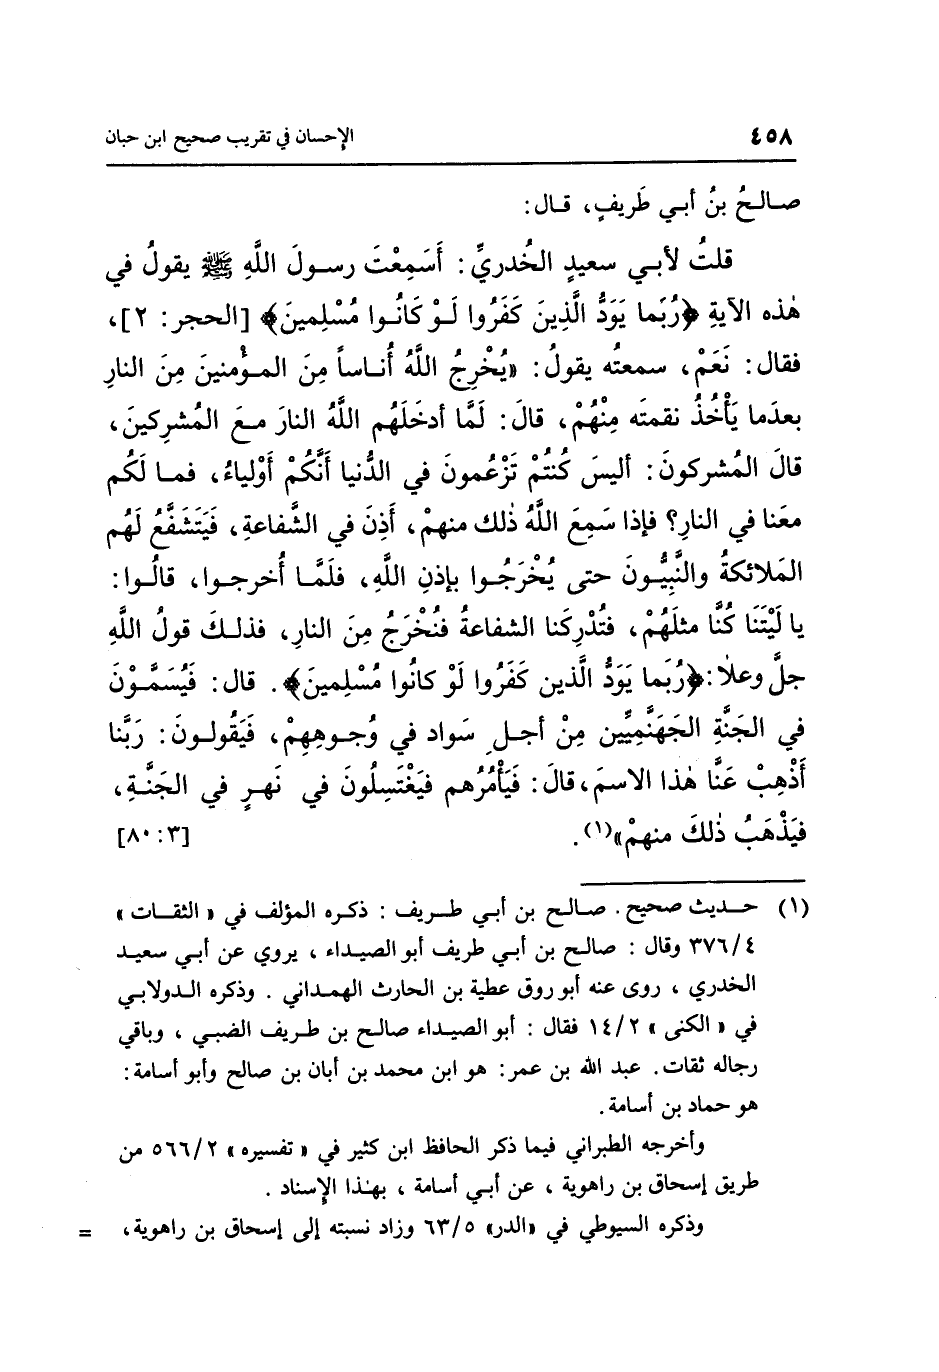 ٤٥٨ الإحسان في تقريب صحيح ابن حبان
صالحُ بنُ أبي طَريفٍ، قال:
قلتُ لأبي سعيدٍ الخُدريِّ: أَسَمِعْتَ رسولَ اللَّهِ ﷺ يقولُ في
هٰذه الآيةِ ﴿رُبَما يَوَدُّ الَّذِينَ كَفَرُوا لَوْ كَانُوا مُسْلِمينَ﴾ [الحجر: ٢]،
فقال: نَعَمْ، سمعتُه يقولُ: «يُخْرِجُ اللَّهُ أُناساً مِنَ المؤْمنينَ مِنَ النارِ
بعدَما يَأْخُذُ نقمتَه مِنْهُمْ، قالَ: لَمَّا أدخَلَهُم اللَّهُ النارَ معَ المُشرِكينَ،
قالَ المُشركونَ: أليسَ كُنتُمْ تَزْعُمونَ في الدُّنيا أَنَّكُمْ أَوْلياءُ، فما لَكُم
معَنا في النارِ؟ فإذا سَمِعَ اللَّهُ ذٰلك منهمْ، أَذِنَ في الشَّفاعةِ، فَيَتَشَفَّعُ لَهُم
المَلائكةُ والنَّبِيُّونَ حتى يُخْرَجُوا بإذنِ اللَّهِ، فلَمَّا أُخرجوا، قالُوا:
يا لَيْتَنَا كُنَّا مثلَهُمْ، فتُدْرِكَنا الشفاعةُ فنُخْرَجُ مِنَ النارِ، فذلكَ قولُ اللَّهِ
جلَّ وعلا:﴿رُبَما يَوَدُّ الَّذين كَفَرُوا لَوْ كانُوا مُسْلِمينَ﴾. قال: فَيُسَمَّوْنَ
في الجَنَّةِ الجَهَنَّمِيِّين مِنْ أجلِ سَواد في وُجوهِهِمْ، فَيَقُولونَ: رَبَّنا
أَذْهِبْ عَنَّا هٰذا الاسمَ، قالَ: فَيَأْمُرُهم فيَغْتَسِلُونَ في نَهرٍ في الجَنَّةِ،
فيَذْهَبُ ذٰلكَ منهمْ»(١). [٣: ٨٠]
(١) حديث صحيح. صالح بن أبي طريف: ذكره المؤلف في «الثقات»
٣٧٦/٤ وقال: صالح بن أبي طريف أبو الصيداء، يروي عن أبي سعيد
الخدري، روى عنه أبو روق عطية بن الحارث الهمداني. وذكره الدولابي
في «الكنى» ١٤/٢ فقال: أبو الصيداء صالح بن طريف الضبي، وباقي
رجاله ثقات. عبد الله بن عمر: هو ابن محمد بن أبان بن صالح وأبو أسامة:
هو حماد بن أسامة.
وأخرجه الطبراني فيما ذكر الحافظ ابن كثير في «تفسيره» ٥٦٦/٢ من
طريق إسحاق بن راهوية، عن أبي أسامة، بهٰذا الإسناد.
وذكره السيوطي في «الدر» ٦٣/٥ وزاد نسبته إلى إسحاق بن راهوية، =